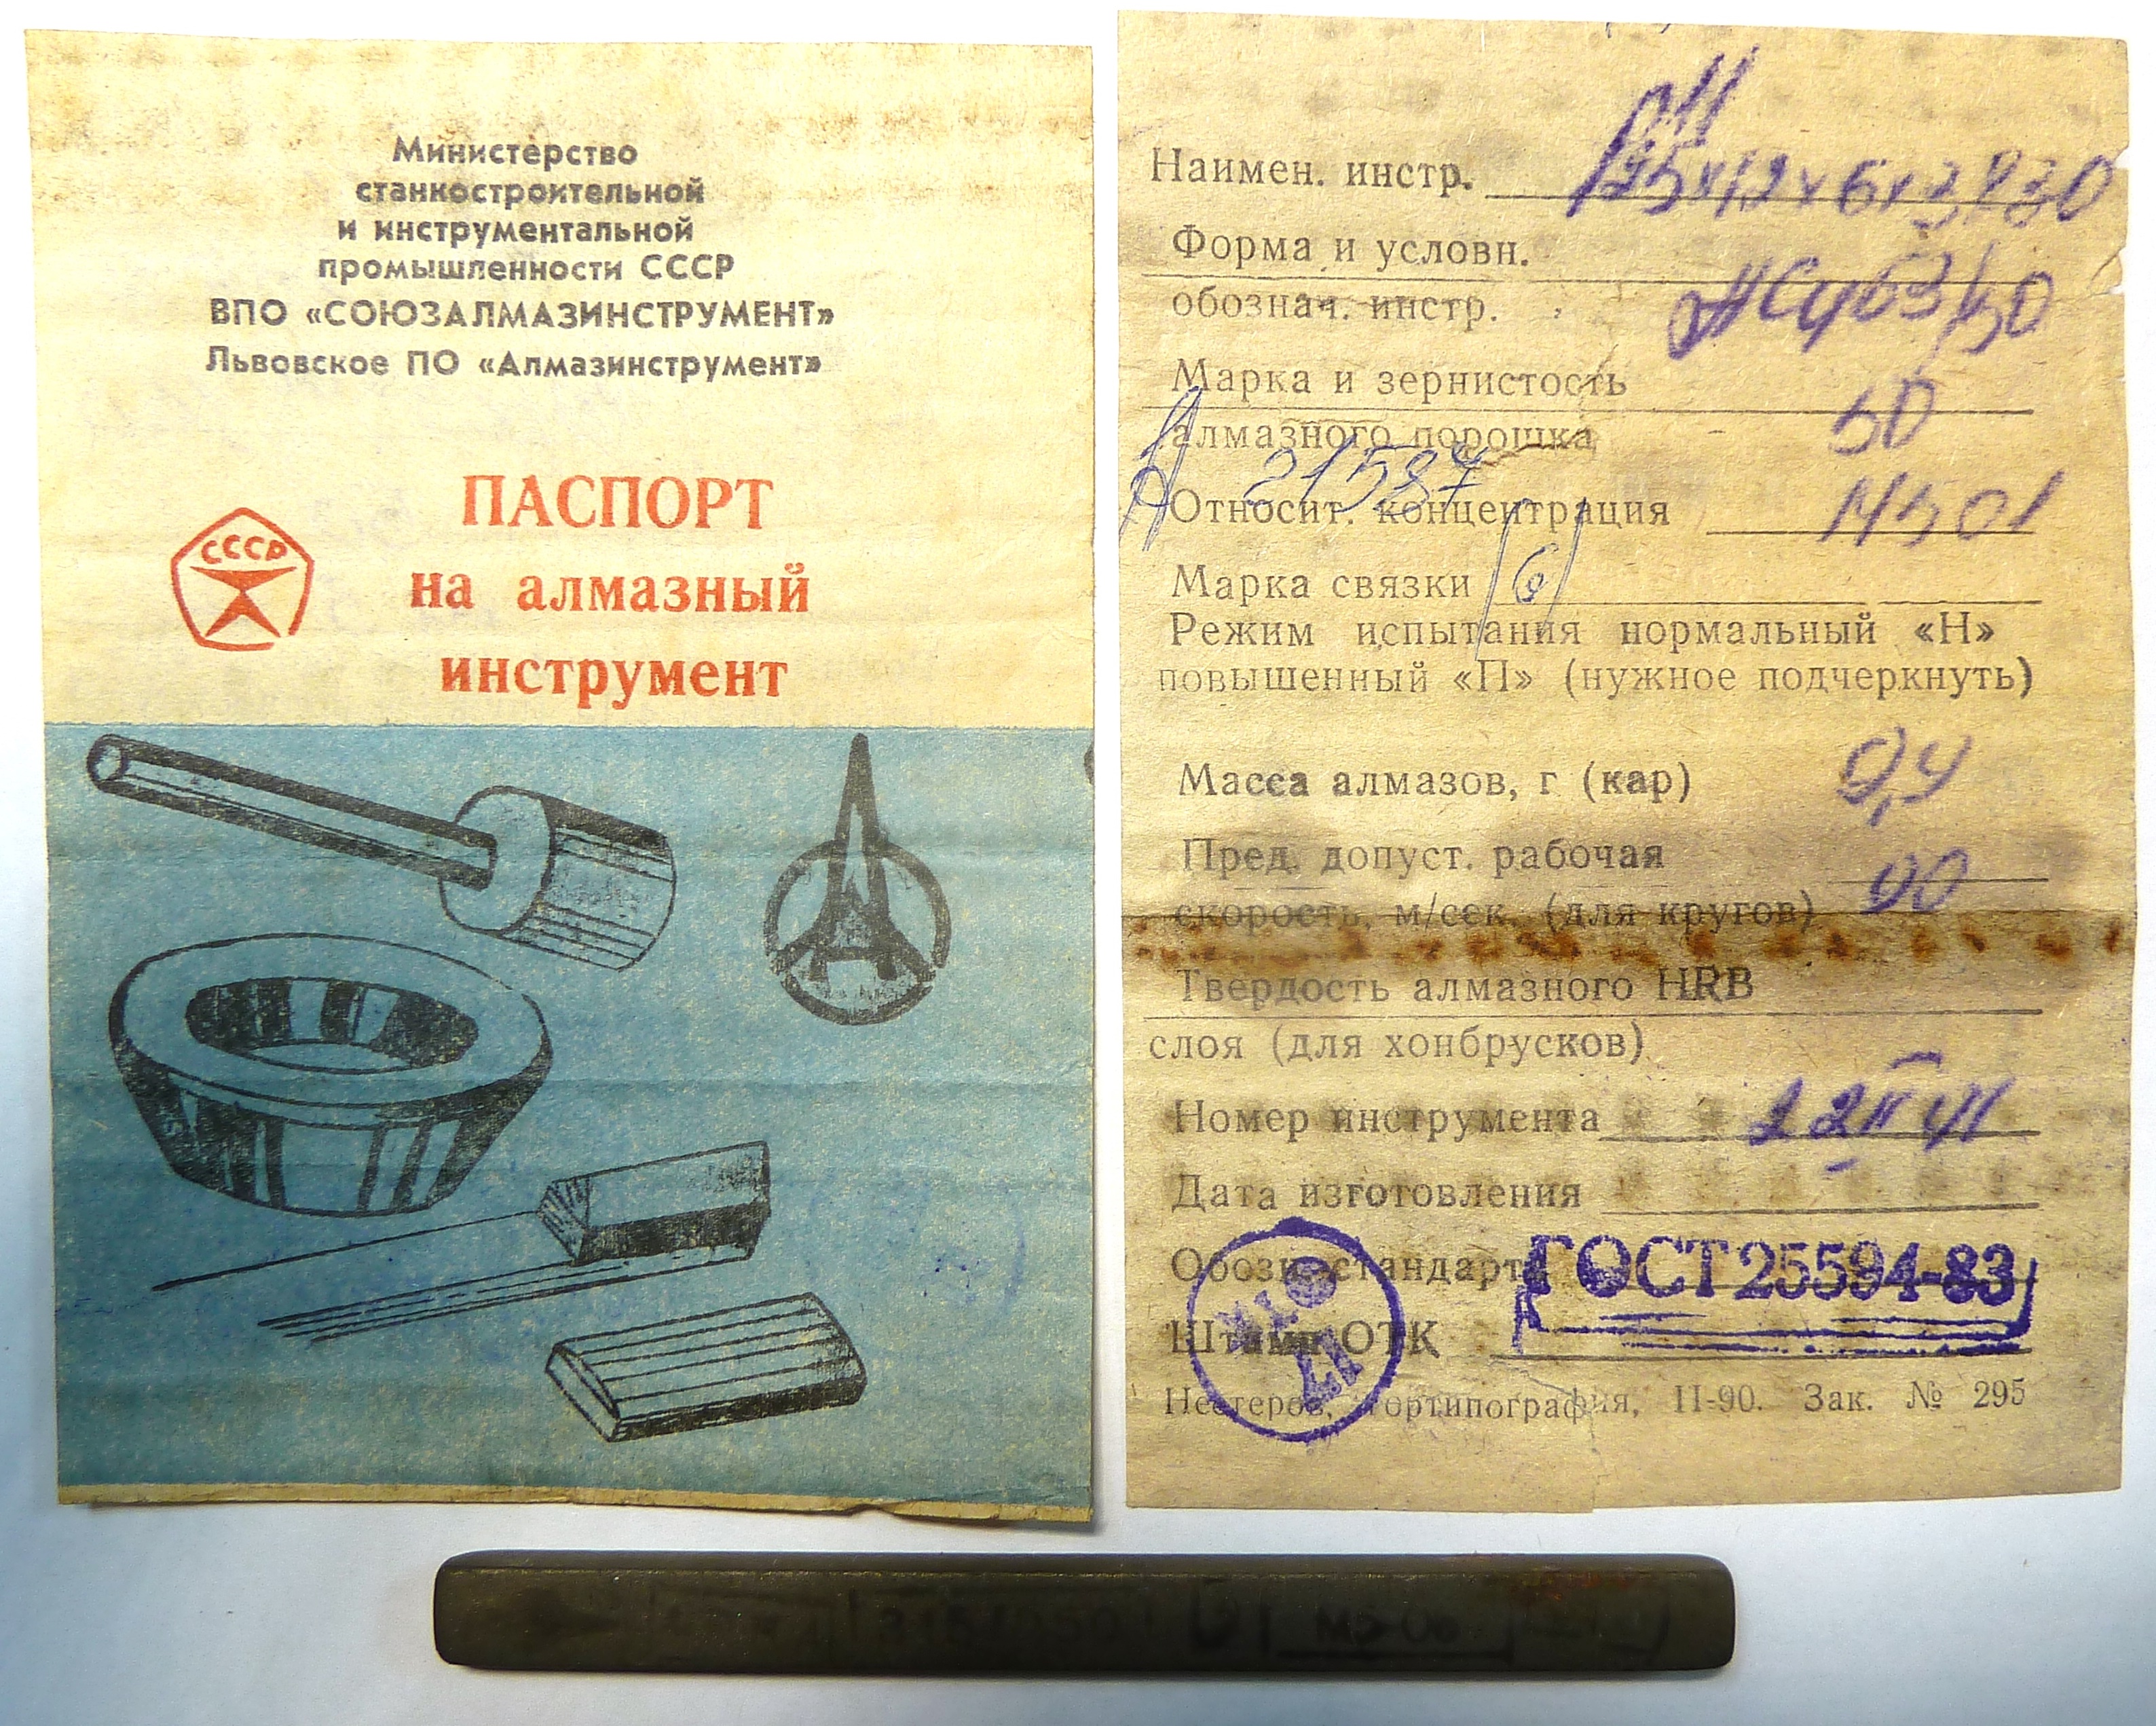 Министерство
станкостроительной
и инструментальной
промышленности СССР
ВПО «СОЮЗАЛМАЗИНСТРУМЕНТ»
Львовское ПО «Алмазинструмент»
СССР
ПАСПОРТ
на алмазный
инструмент
Наимен. инстр.
Форма и условн.
обознач. инстр.
Марка и зернистость
50
алмазного порошка
21587
Относит. концентрация
Марка связки
Режим испытания нормальный «Н»
повышенный «П» (нужное подчеркнуть)
Масса алмазов, г (кар) 9,4
Пред. допуст. рабочая
скорость, м/сек. (для кругов)
Твердость алмазного HRB
слоя (для хонбрусков)
Номер инструмента
Дата изготовления
Обозн. стандарта ГОСТ 25594-83
Штамп ОТК
ОТК
17
Нестеров, гортипография, II-90. Зак. № 295